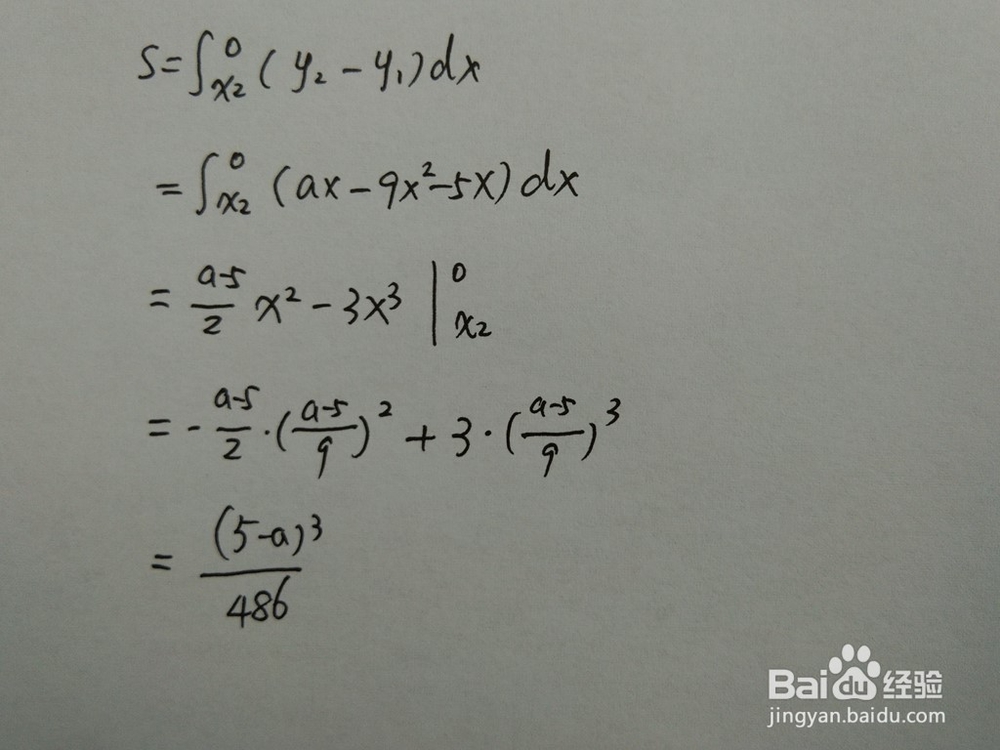 S=∫_{x₂}^{0} (y₂-y₁)dx
=∫_{x₂}^{0} (ax-9x²-5x)dx
= \frac{a-5}{2} x²-3x³ |_{x₂}^{0}
= -\frac{a-5}{2}·(\frac{a-5}{9})² + 3·(\frac{a-5}{9})³
= \frac{(5-a)³}{486}
Baidu 经验
jingyan.baidu.com